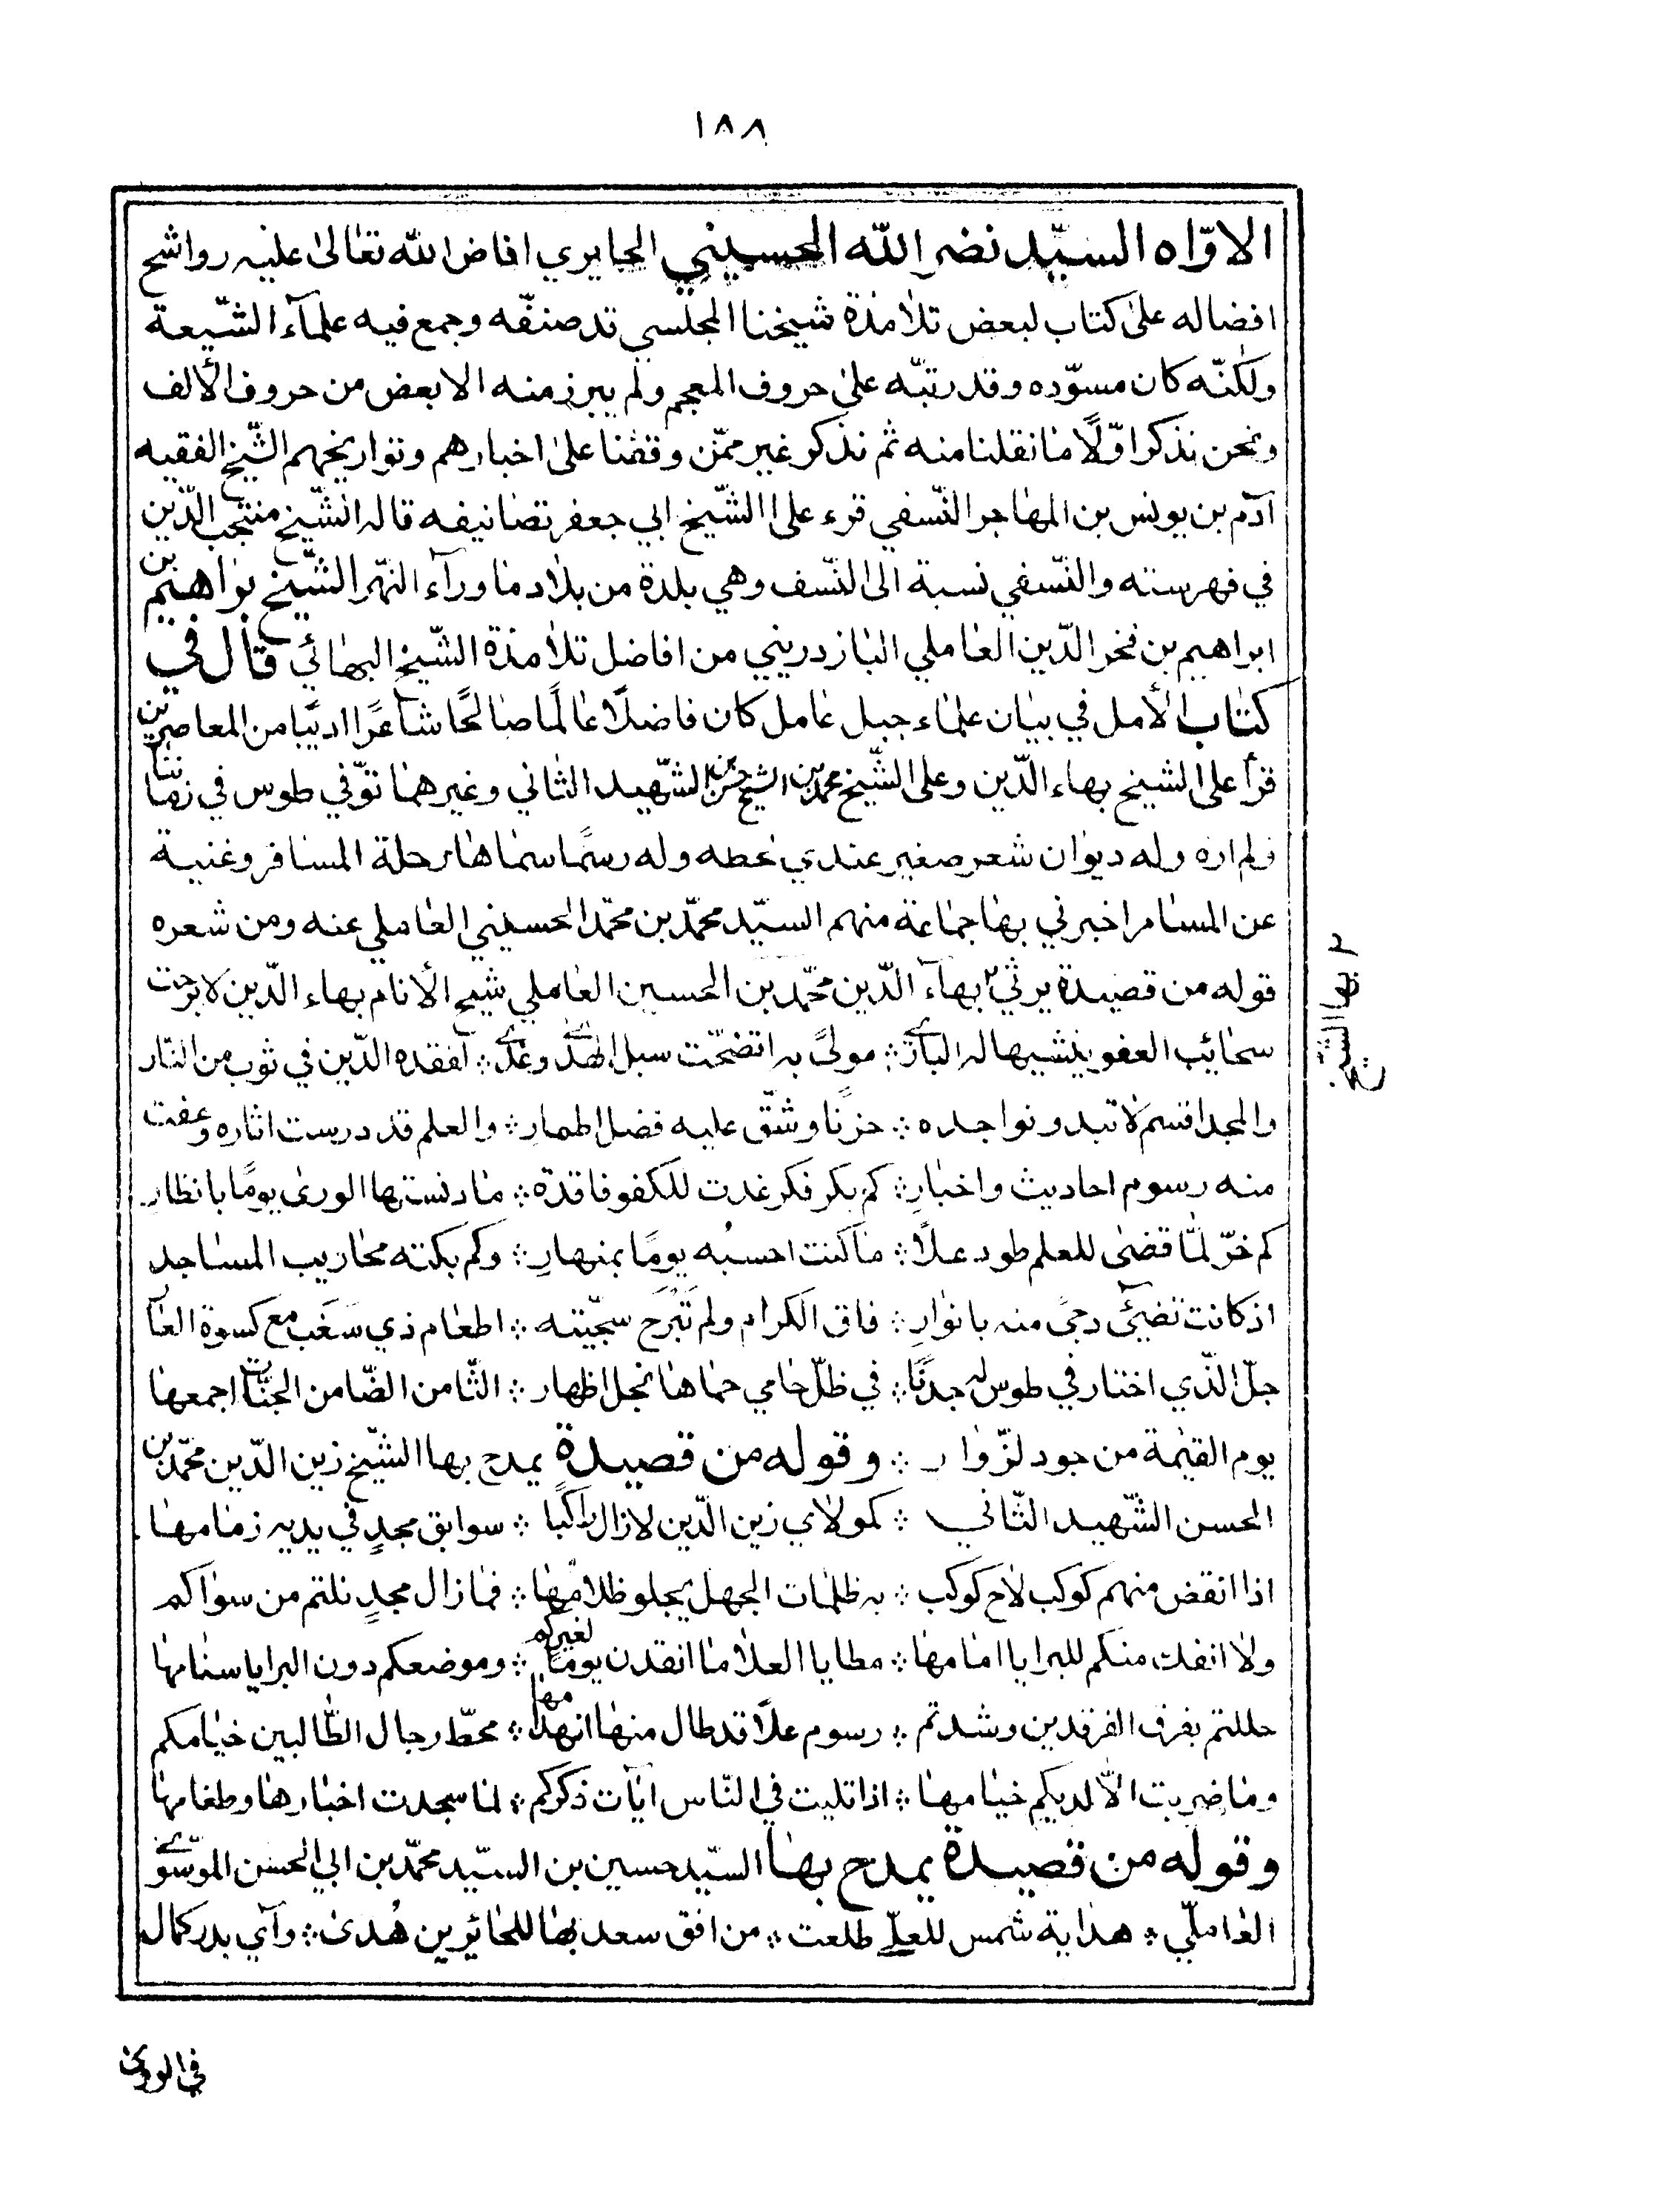 ١٨٨
الاوّاه السيّد نصر الله الحسيني الحايري افاض الله تعالى عليه رواشح
افضاله على كتاب لبعض تلامذة شيخنا المجلسي قد صنفّه وجمع فيه علمآء الشّيعة
ولكنّه كان مسوّده وقد رتبّه على حروف المعجم ولم يبرز منه الا بعض من حروف الألف
ونحن نذكر اوّلًا ما نقلنا منه ثم نذكر غير ممّن وقفنا على اخبارهم وتواريخهم الشّيخ الفقيه
آدم بن يونس بن المهاجر النّسفي قرء على الشّيخ ابي جعفر تصانيفه قاله الشّيخ منتجب الدّين
في فهرسته والنّسفي نسبة الى النّسف وهي بلدة من بلاد ما ورآء النّهر الشّيخ براهيم بن
ابراهيم بن فخر الدّين العاملي البازدريني من افاضل تلامذة الشّيخ البهائي قال في
كتاب الأمل في بيان علماء جبل عامل كان فاضلًا عالمًا صالحًا شاعرًا اديبًا من المعاصرين
قرأ على الشيخ بهاء الدّين وعلى الشّيخ محمد بن الشيخ حسن بن الشهّيد الثاني وغيرهما توّفي طوس في زماننا
ولم اره وله ديوان شعر صغير عندي بخطه وله رسمًا سماها رحلة المسافر وغنية
عن المسامر اخبرني بها جماعة منهم السيّد محمّد بن محمّد الحسيني العاملي عنه ومن شعره
قوله من قصيدة يرثي ٢ بهآء الدّين محمّد بن الحسين العاملي شيخ الأنام بهاء الدّين لا برحت
سحائب العفو ينشيها له الباري ؞ مولىً به اتضحّت سبل الهدى وغدى ؞ لفقده الدّين في ثوب من النّار
والمجد اقسم لا تبدو نواجده ؞ حزنًا وشقّ عليه فضل اطمار ؞ والعلم قد درست اثاره وعفت
منه رسوم احاديث واخبارِ ؞ كم بكر فكر غدت للكفو فاقدة ؞ ما دنستها الورى يومًا بانظار
كم خرّ لمّا قضى للعلم طود علًا ؞ ما كنت احسبُه يومًا بمنهارِ ؞ وكم بكته محاريب المساجد
اذ كانت تضيئ دجىً منه بانوارِ ؞ فاق الكرام ولم تَبْرَح سجّيته ؞ اطعام ذي سَغَب مع كسوة العا
جلّ الّذي اختار في طوس له جدثًا ؞ في ظلّ حامي حماها نجل اظهار ؞ الثّامن الضّامن الجنّات اجمعها
يوم القيٰمة من جود لزّوار ؞ وقوله من قصيدة يمدح بها الشّيخ زين الدّين محمّد بن
الحسن الشّهيد الثّاني ؞ كمولاي زين الدّين لا زال راكبًا ؞ سوابق مجدٍ في يديه زمامها
اذا انقض منهم كوكب لاح كوكب ؞ به ظلمات الجهل يجلو ظلامُها ؞ فما زال مجدٍ نلتم من سواكم
ولا انفك منكم للبرايا امامها ؞ مطايا العلا ما انقدن يومًا لغيركم ؞ وموضعكم دون البرايا سنامها
حللتم بفرق الفرقدين وشدتم ؞ رسوم علًا قد طال منها انهدامها ؞ محطّ رجال الطّالبين خيامكم
وما ضربت الّا لديكم خيامها ؞ اذا تليت في النّاس ايات ذكركم ؞ لها سجدت اخبارها وطغامها
وقوله من قصيدة يمدح بها السيّد حسين بن السيّد محمّد بن ابي الحسن الموسّوي
العاملّي ؞ هداية شمس للعلى طلعت ؞ من افق سعد بها للحائرين هُدى ؞ وآي بدر كمال
في الورى
٢ بها الشّيخ